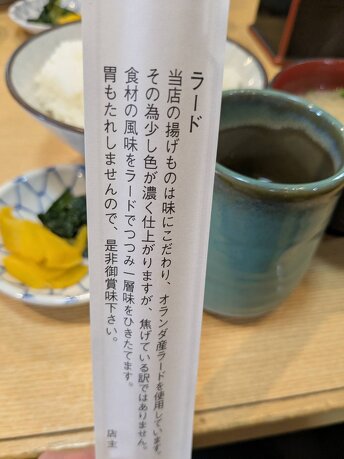 ラード
当店の揚げものは味にこだわり、オランダ産ラードを使用しています。
その為少し色が濃く仕上がりますが、焦げている訳ではありません。
食材の風味をラードでつつみ一層味をひきたてます。
胃もたれしませんので、是非御賞味下さい。
店主